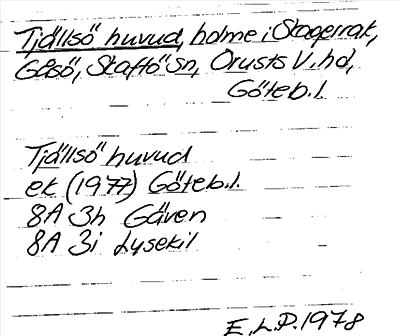 Tjällsö huvud, holme i Skagerrak,
Gåsö, Skaftö sn, Orusts V. hd,
Göteb. l.
Tjällsö huvud
ek (1977) Göteb. l.
8A 3h Gäven
8A 3i Lysekil
E.L.P. 1978